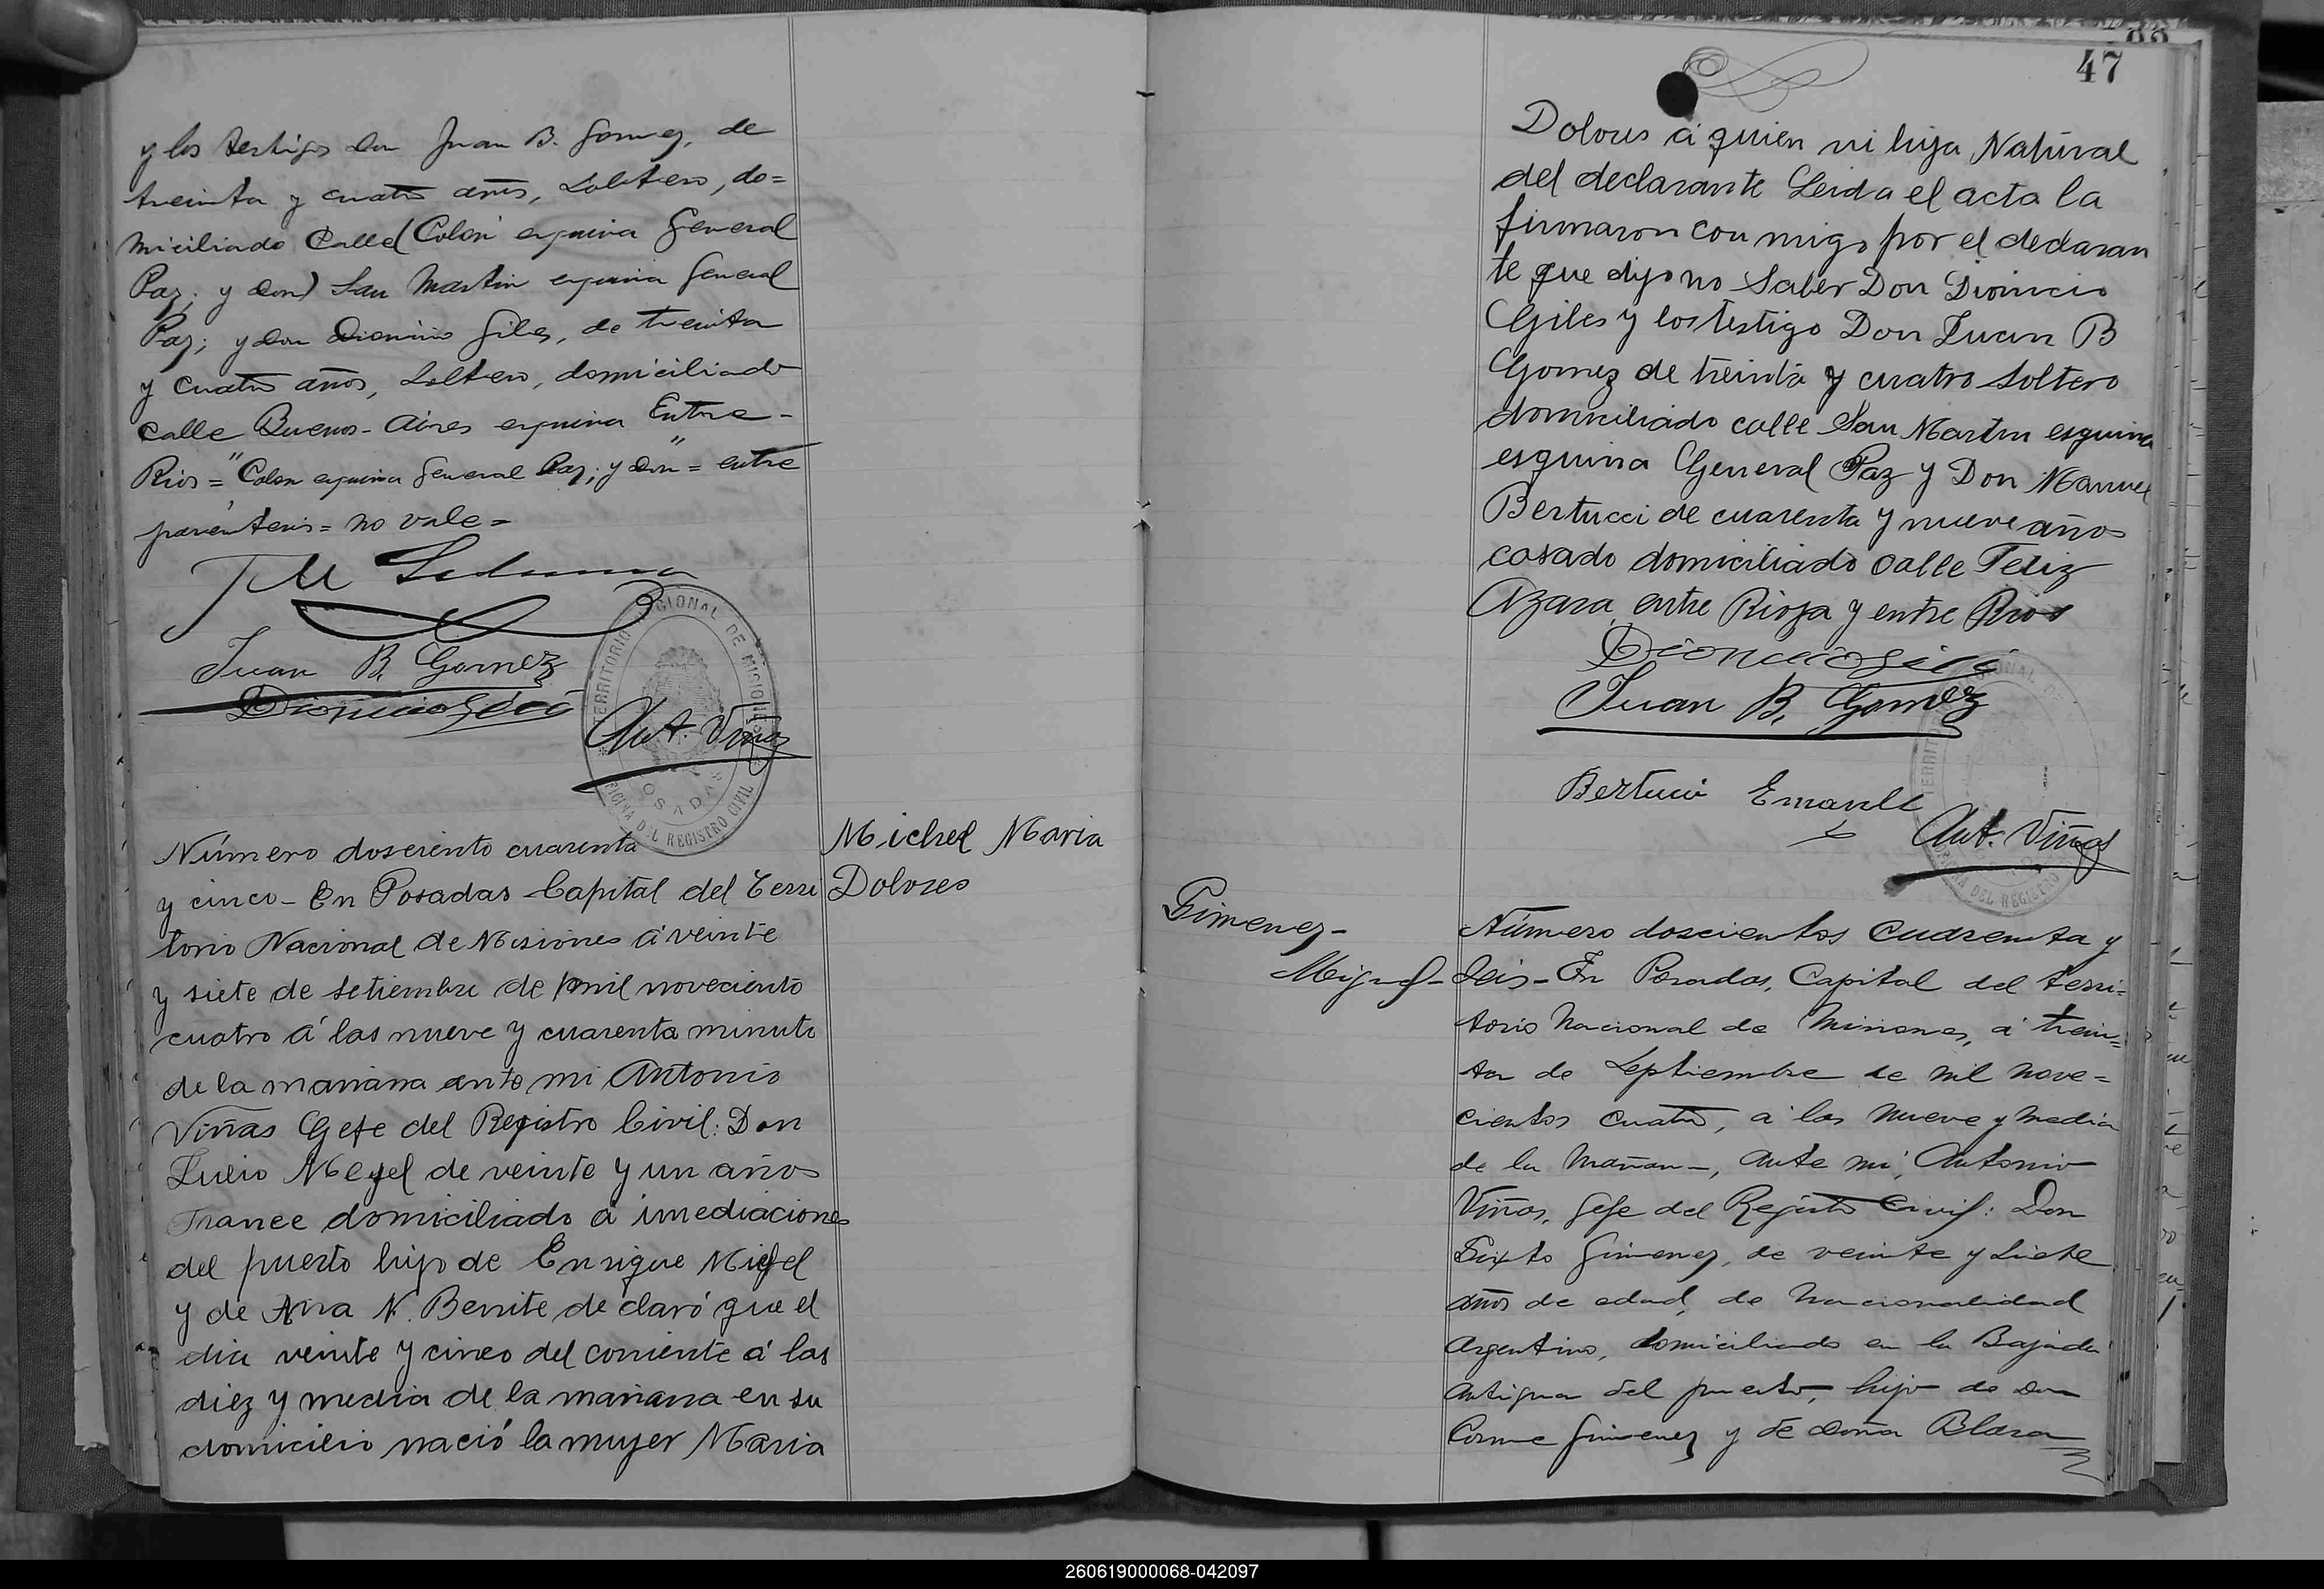 y los testigos don Juan B. Gomez, de
treinta y cuatro años, soltero, do=
miciliado Calle (Colon esquina General
Paz; y don) San Martin esquina General
Paz; y don Dionicio Giles, de treinta
y cuatro años, soltero, domiciliado
calle Buenos-Aires esquina Entre-
Rios = "Colon esquina General Paz; y don" = entre
paréntesis = no vale =
Juan B. Gomez
Dionicio Giles
TERRITORIO NACIONAL DE MISIONES
POSADAS
OFICINA DEL REGISTRO CIVIL
Ant. Viñas
Michel Maria
Dolores
Número dosciento cuarenta
y cinco - En Posadas Capital del Terri
torio Nacional de Misiones á veinte
y siete de setiembre de mil noveciento
cuatro á las nueve y cuarenta minuto
de la mañana ante mi Antonio
Viñas Gefe del Registro Civil: Don
Lucio Megel de veinte y un años
France domiciliado á imediaciones
del puerto hijo de Enrique Migel
y de Ana N. Benite declaró que el
dia veinte y cinco del corriente á las
diez y media de la mañana en su
domicilio nació la mujer Maria
47
Dolores á quien vi hija Natural
del declarante Leida el acta la
firmaron con migo por el declaran
te que dijo no Saber Don Dionicio
Giles y los testigo Don Juan B
Gomez de treinta y cuatro soltero
domiciliado calle San Martin esquina
esquina General Paz y Don Manuel
Bertucci de cuarenta y nueve años
casado domiciliado calle Feliz
Azara entre Rioja y entre Rios
Dionicio Giles
Juan B. Gomez
Bertucci Emanele
Ant. Viñas
Gimenez-
Miguel-
Número doscientos cuarenta y
seis - En Posadas, Capital del terri=
torio Nacional de Misiones, á trein=
ta de Septiembre de mil nove=
cientos cuatro, á las nueve y media
de la mañana, ante mi, Antonio
Viñas, Gefe del Registro Civil: Don
Sixto Gimenez, de veinte y siete
años de edad, de nacionalidad
Argentino, domiciliado en la Bajada
antigua del puerto, hijo de Don
Cosme Gimenez y de doña Blasa
260619000068-042097